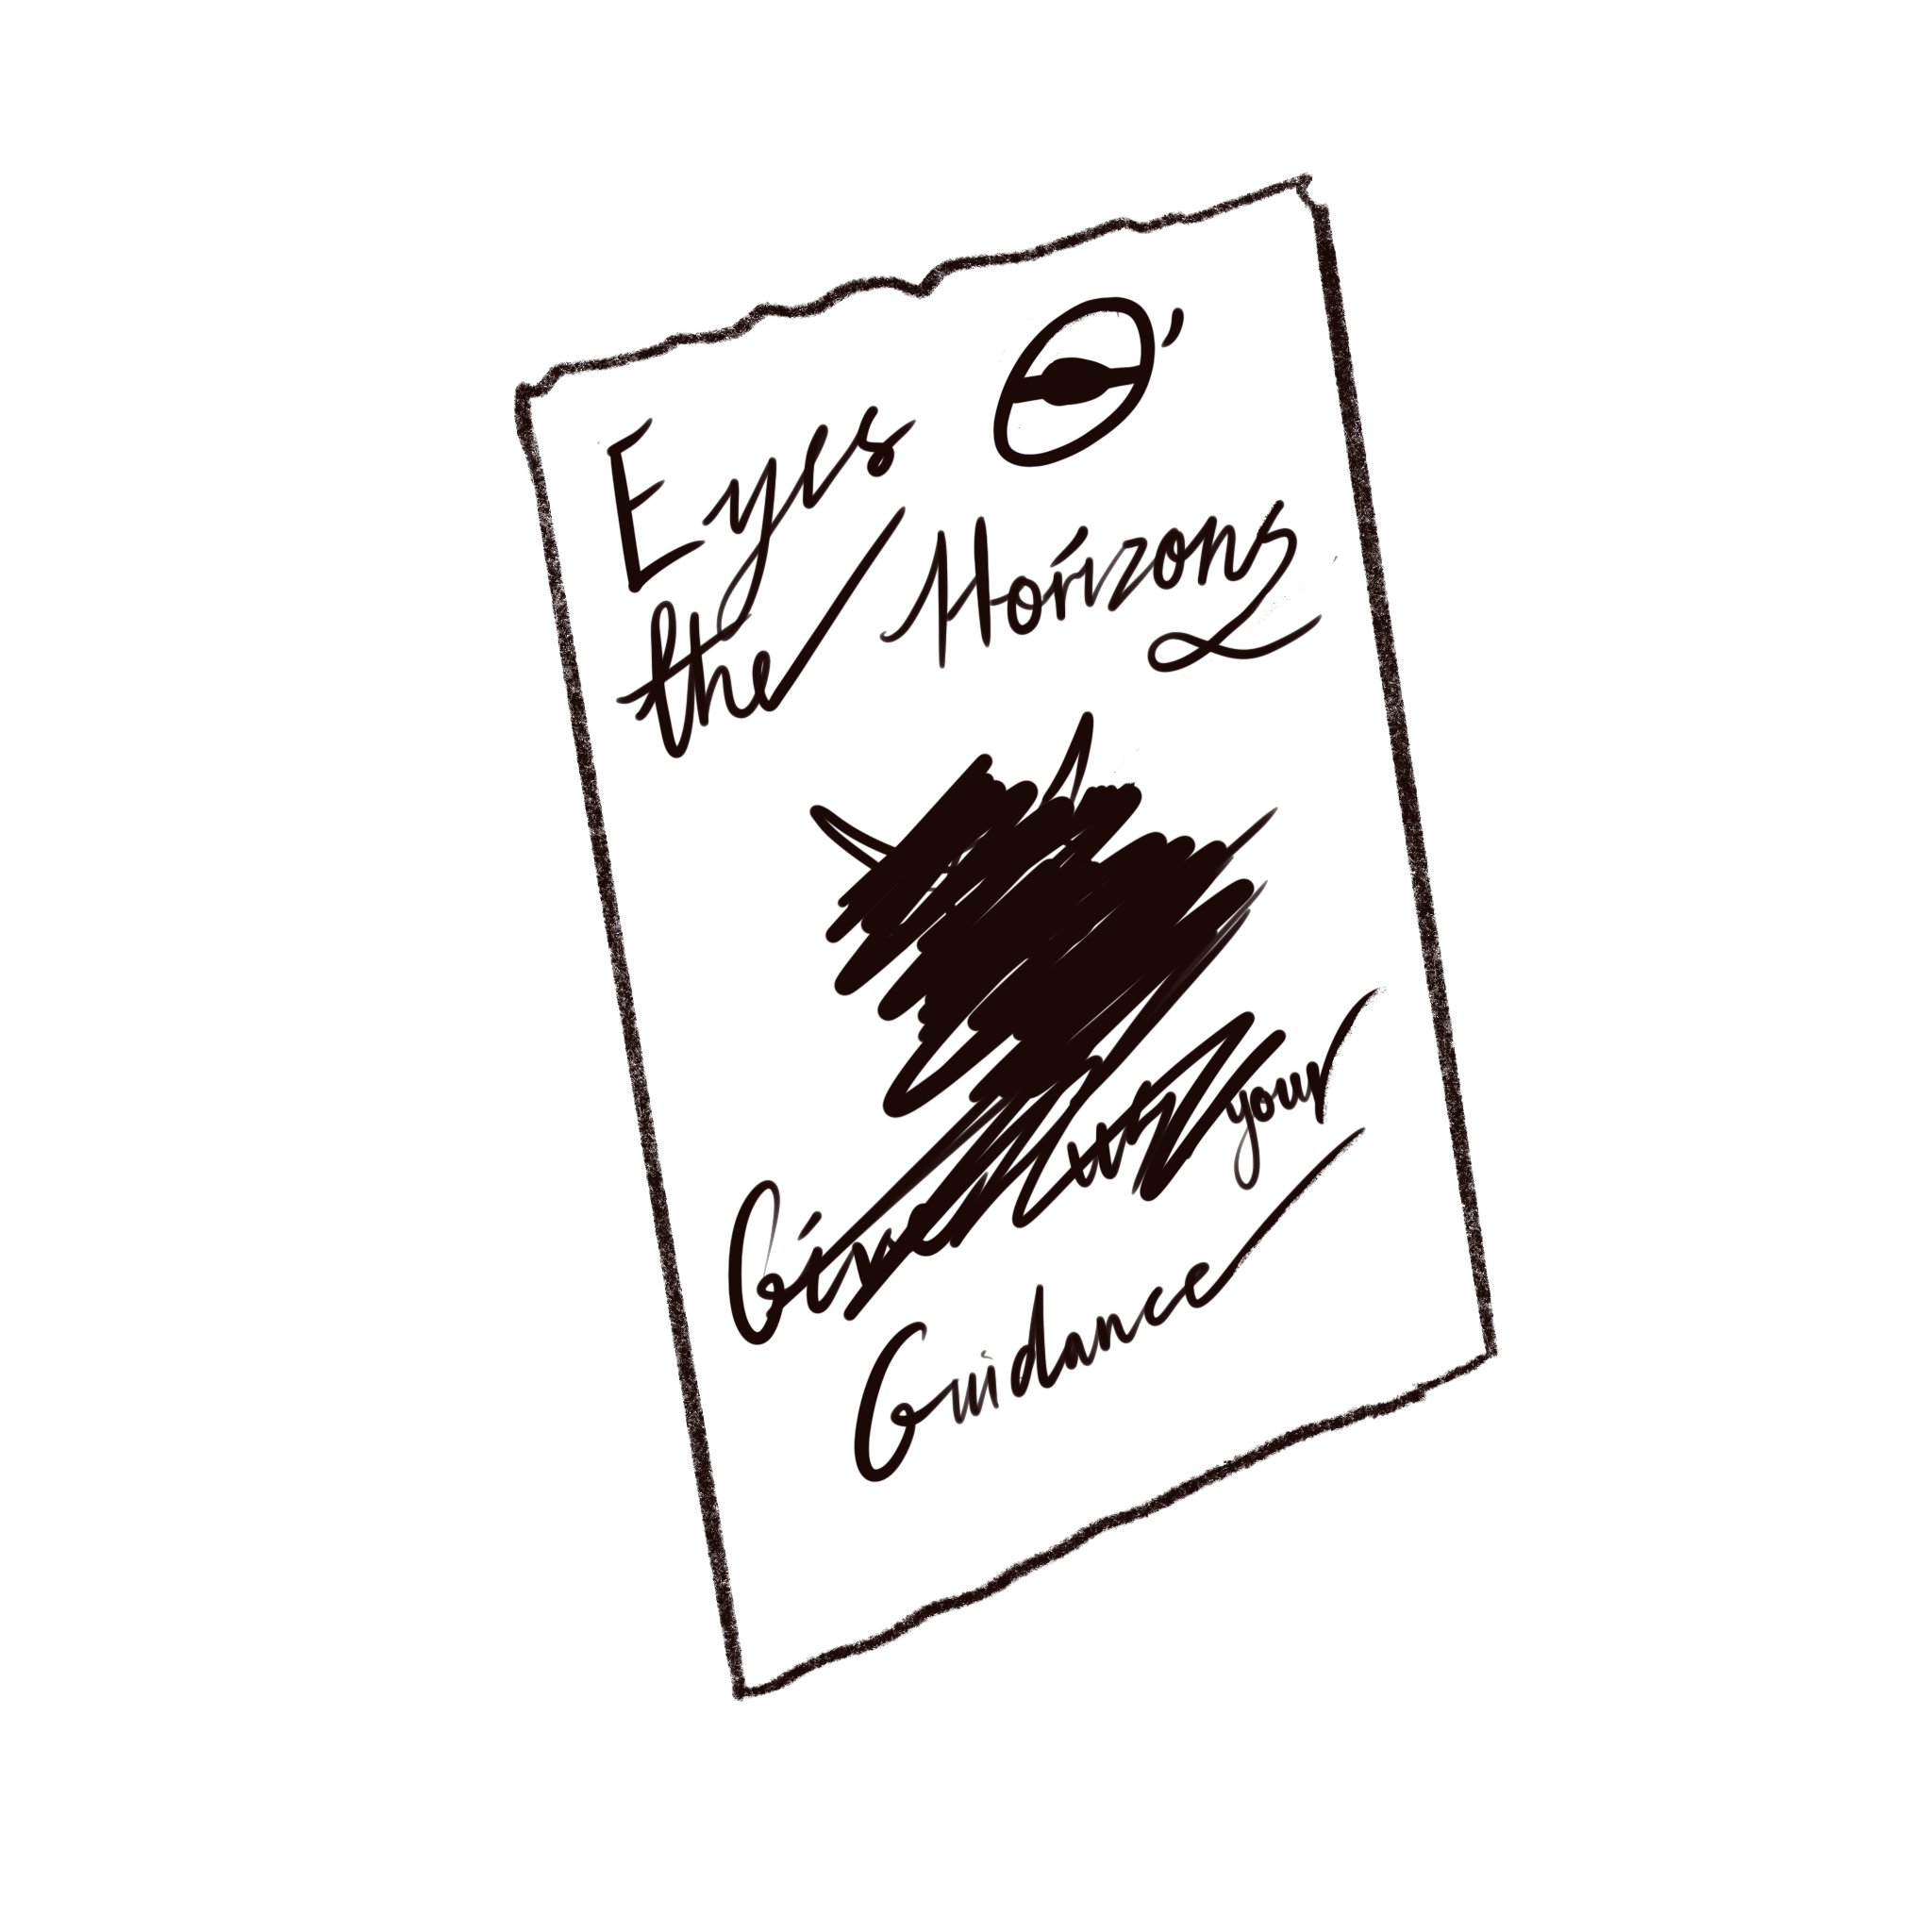 Eyes O'
the Horizons
Give us your
Guidance